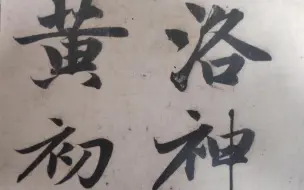 洛神
黄初